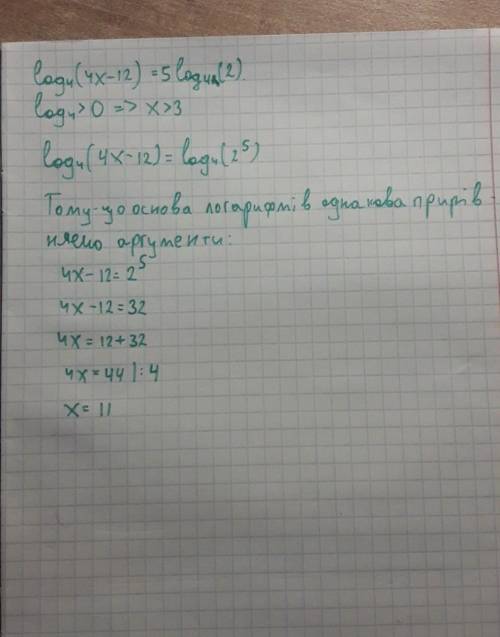 log₄(4x-12) = 5log₄(2).
log₄>0 => x>3
log₄(4x-12) = log₄(2⁵)
Тому-що основа логарифмів однакова прирів-
няємо аргументи:
4x-12 = 2⁵
4x-12 = 32
4x = 12+32
4x = 44 |:4
x = 11